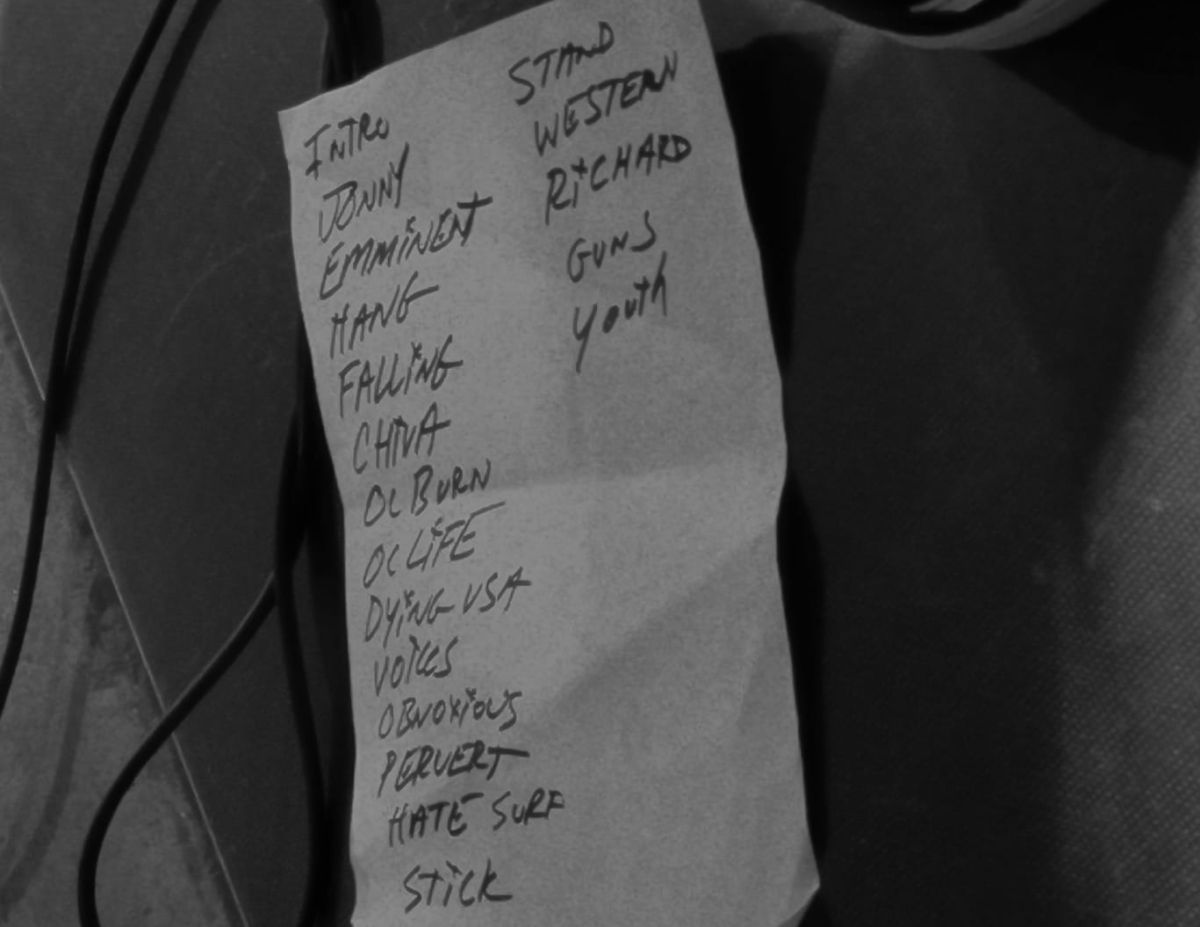 INTRO
JONNY
EMMiNENT
HANG
FALLiNG
CHiNA
OC BURN
OC LiFE
DYiNG USA
VOiCES
OBNOXiOUS
PERVERT
HATE SURF
STiCK
STAND
WESTERN
RiCHARD
GUNS
Youth